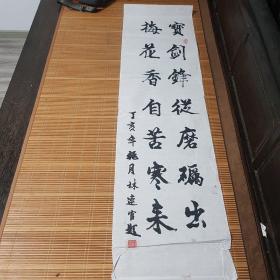 寶劍鋒從磨礪出
梅花香自苦寒来
丁亥年
月林
題